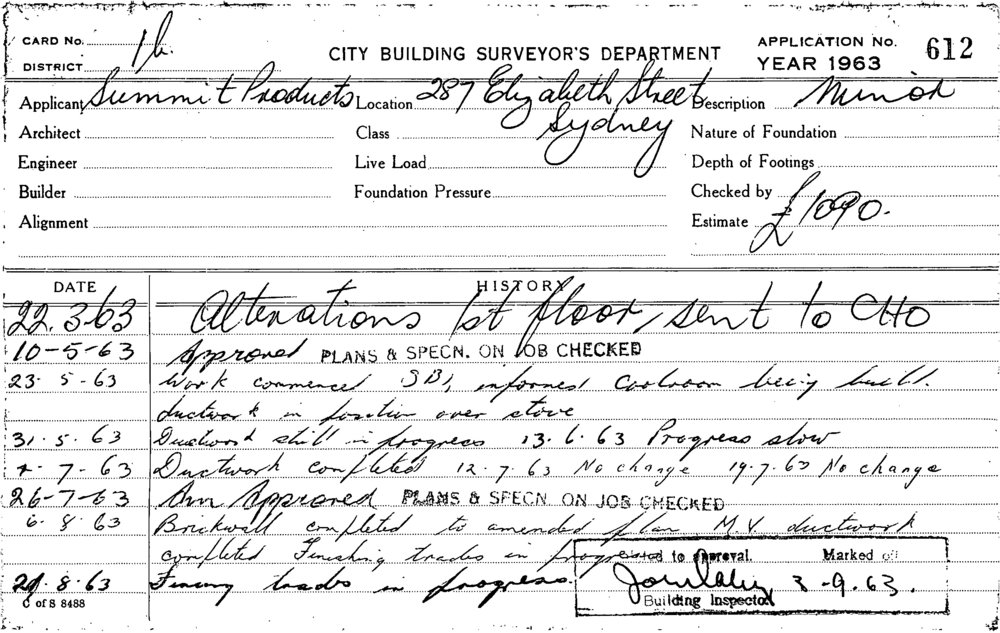 CARD No. 16.
DISTRICT
CITY BUILDING SURVEYOR'S DEPARTMENT
APPLICATION No. 612
YEAR 1963
Applicant Summit Products Location 287 Elizabeth Street Sydney Description Minor
Architect Class Nature of Foundation
Engineer Live Load Depth of Footings
Builder Foundation Pressure Checked by
Alignment Estimate £1090.
DATE HISTORY
22.3.63 Alterations 1st floor, sent to CHO
10-5-63 Approved PLANS & SPECN. ON JOB CHECKED
23.5-63 Work commenced informed Coolroom being built.
ductwork in position over stove
31.5.63 Ductwork still in progress 13.6.63 Progress slow
7-63 Ductwork completed 12.7.63 No change 19.7.63 No change
26-7-63 Am Approved PLANS & SPECN. ON JOB CHECKED
6.8.63 Brickwall completed to amended plan M.V. ductwork
completed Finishing trades in progress
to approval. Marked off
29.8.63 trades in progress. 3-9.63.
Building Inspector
C of S 8488